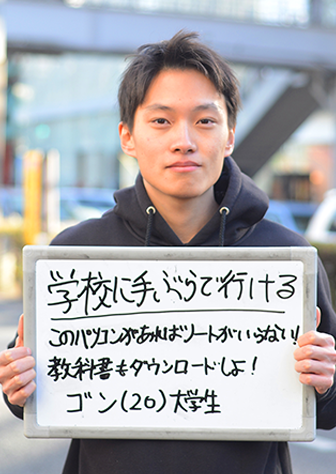 学校に手ぶらで行ける
このパソコンがあればノートがいらない!
教科書もダウンロードしよ!
ゴン(20)大学生